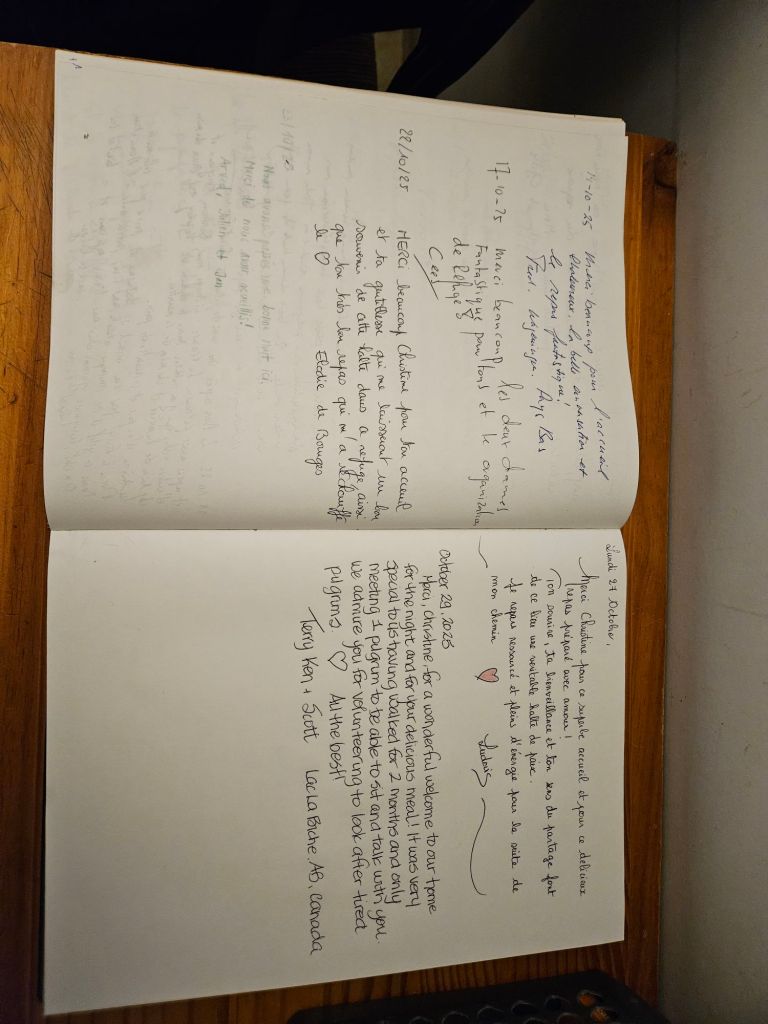 14-10-25 Merci beaucoup pour l'accueil
chaleureux, la belle conversation et
le repas fantastique!
Pays Bas
17-10-25 Merci beaucoup les deux dames
Fantastique pour tons et te organizatie
de Refuge
Ceef
22/10/25 MERCI beaucoup Christine pour ton accueil
et ta gentillesse qui me laisseront un bon
souvenir de cette halte dans ce refuge, ainsi
que ton très bon repas qui m'a réchauffé
le ♡
Elodie de Bourges
Nous avons passé une bonne nuit ici.
Merci de nous avoir accueilli!
Lundi 27 Octobre,
Merci Christine pour ce superbe accueil et pour ce délicieux
repas préparé avec amour!
Ton sourire, ta bienveillance et ton sens du partage font
de ce lieu une véritable halte de paix.
Je repars ressourcé et pleins d'énergie pour la suite de
mon chemin ♡ Ludovic
October 29, 2025
Merci, Christine, for a wonderful welcome to our home
for the night and for your delicious meal! It was very
special to us having walked for 2 months and only
meeting 1 pilgrim to be able to sit and talk with you.
We admire you for volunteering to look after tired
pilgrims. ♡ All the best!
Terry Ken + Scott Lac La Biche, AB, Canada